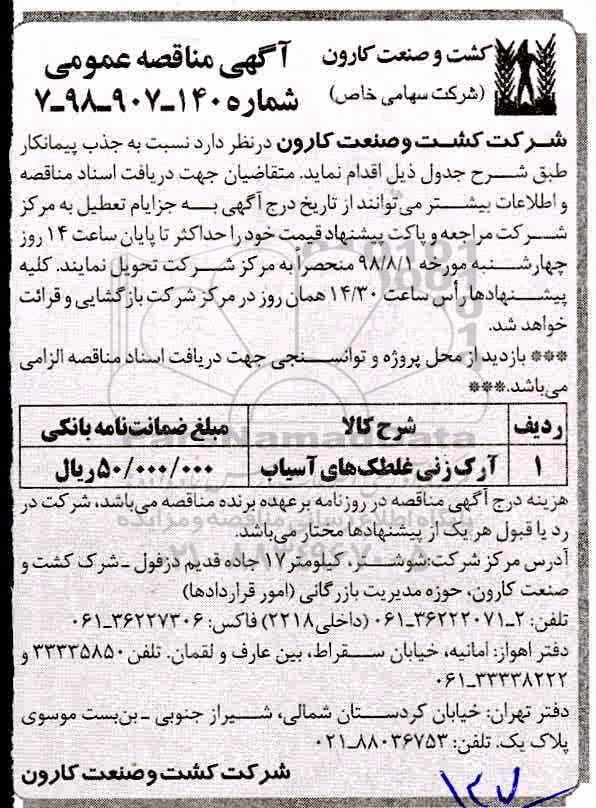 کشت و صنعت کارون
(شرکت سهامی خاص)
آگهی مناقصه عمومی
شماره ۱۴۰-۹۰۷-۹۸-۷
شرکت کشت و صنعت کارون درنظر دارد نسبت به جذب پیمانکار
طبق شرح جدول ذیل اقدام نماید. متقاضیان جهت دریافت اسناد مناقصه
و اطلاعات بیشتر می‌توانند از تاریخ درج آگهی به جزایام تعطیل به مرکز
شرکت مراجعه و پاکت پیشنهاد قیمت خود را حداکثر تا پایان ساعت ۱۴ روز
چهارشنبه مورخه ۹۸/۸/۱ منحصراً به مرکز شرکت تحویل نمایند. کلیه
پیشنهادها رأس ساعت ۱۴/۳۰ همان روز در مرکز شرکت بازگشایی و قرائت
خواهد شد.
*** بازدید از محل پروژه و توانسنجی جهت دریافت اسناد مناقصه الزامی
می‌باشد.***
ردیف شرح کالا مبلغ ضمانت‌نامه بانکی
۱ آرک زنی غلطک‌های آسیاب ۵۰/۰۰۰/۰۰۰ ریال
هزینه درج آگهی مناقصه در روزنامه برعهده برنده مناقصه می‌باشد، شرکت در
رد یا قبول هر یک از پیشنهادها مختار می‌باشد.
آدرس مرکز شرکت:شوشتر، کیلومتر ۱۷ جاده قدیم دزفول - شرک کشت و
صنعت کارون، حوزه مدیریت بازرگانی (امور قراردادها)
تلفن: ۲-۳۶۲۲۲۰۷۱-۰۶۱ (داخلی۲۲۱۸) فاکس: ۳۶۲۲۷۳۰۶-۰۶۱
دفتر اهواز: امانیه، خیابان سقراط، بین عارف و لقمان. تلفن ۳۳۳۳۵۸۵۰ و
۳۳۳۳۸۲۲۲-۰۶۱
دفتر تهران: خیابان کردستان شمالی، شیراز جنوبی - بن‌بست موسوی
پلاک یک. تلفن: ۸۸۰۳۶۷۵۳-۰۲۱
شرکت کشت و صنعت کارون